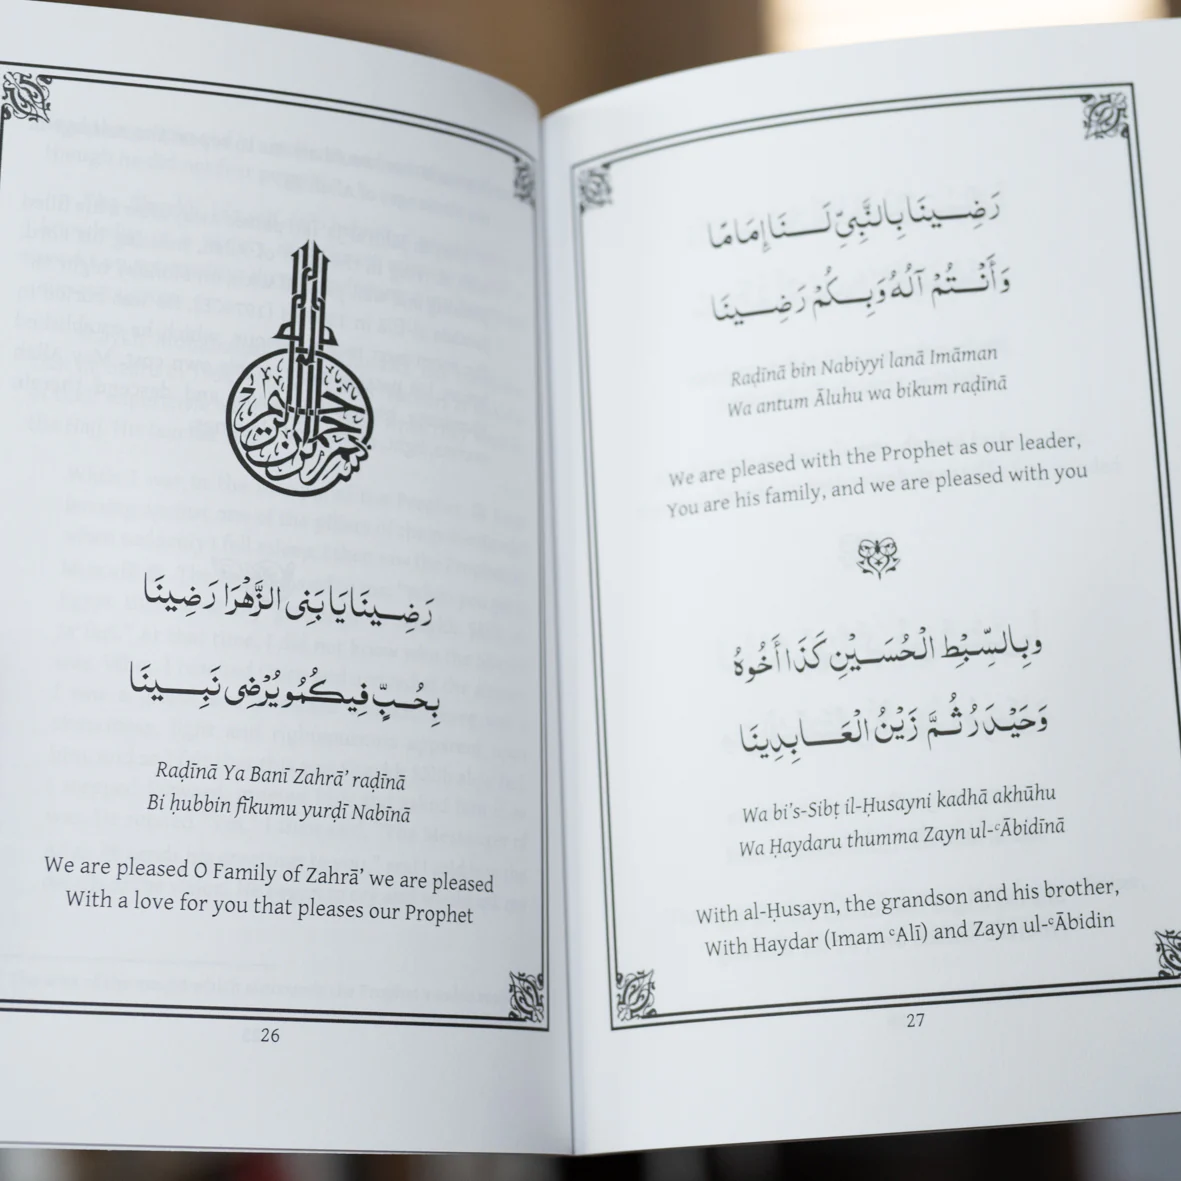 بسم الله الرحمن الرحيم
رَضِينَا يَا بَنِي الزَّهْرَا رَضِينَا
بِحُبٍّ فِيكُمُو يُرْضِى نَبِينَا
Raḍīnā Ya Banī Zahrā’ raḍīnā
Bi ḥubbin fīkumu yurḍī Nabīnā
We are pleased O Family of Zahrā’ we are pleased
With a love for you that pleases our Prophet
26
رَضِينَا بِالنَّبِيِّ لَنَا إِمَامًا
وَأَنْتُمْ آلُهُ وَبِكُمْ رَضِينَا
Raḍīnā bin Nabiyyi lanā Imāman
Wa antum Āluhu wa bikum raḍīnā
We are pleased with the Prophet as our leader,
You are his family, and we are pleased with you
وبِالسِّبْطِ الْحُسَيْنِ كَذَا أَخُوهُ
وَحَيْدَرُ ثُمَّ زَيْنُ الْعَابِدِينَا
Wa bi’s-Sibṭ il-Ḥusayni kadhā akhūhu
Wa Ḥaydaru thumma Zayn ul-ʿĀbidīnā
With al-Ḥusayn, the grandson and his brother,
With Haydar (Imam ʿAlī) and Zayn ul-ʿĀbidin
27